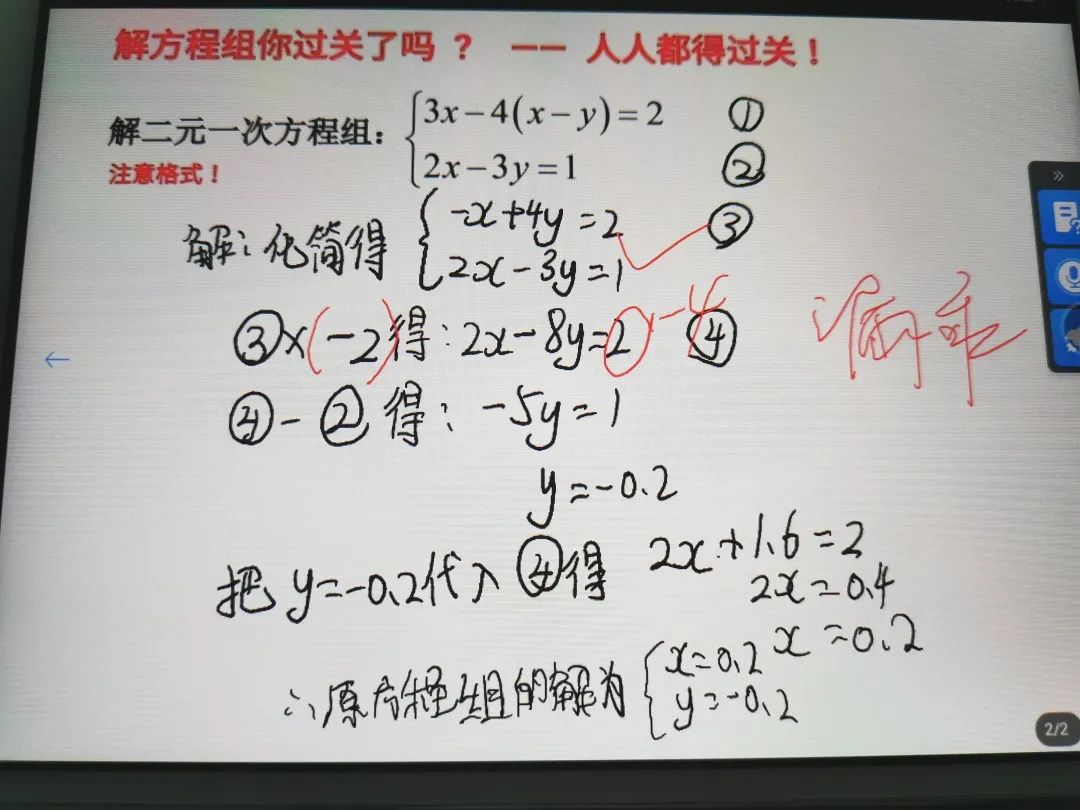 解方程组你过关了吗？ —— 人人都得过关！
解二元一次方程组：
{3x－4(x－y)＝2 ①
2x－3y＝1 ②
注意格式！
解：化简得 {-x+4y=2 ③
2x-3y=1
③×(-2)得：2x-8y=2 -4 ④
漏乘
④-②得：-5y=1
y=-0.2
把y=-0.2代入④得 2x+1.6=2
2x=0.4
x=0.2
∴原方程组的解为 {x=0.2
y=-0.2
2/2